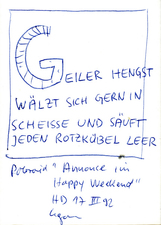 GEILER HENGST
WÄLZT SICH GERN IN
SCHEISSE UND SÄUFT
JEDEN ROTZKÜBEL LEER
Polaroid "Annonce im
Happy Weekend"
HD 17 III 92